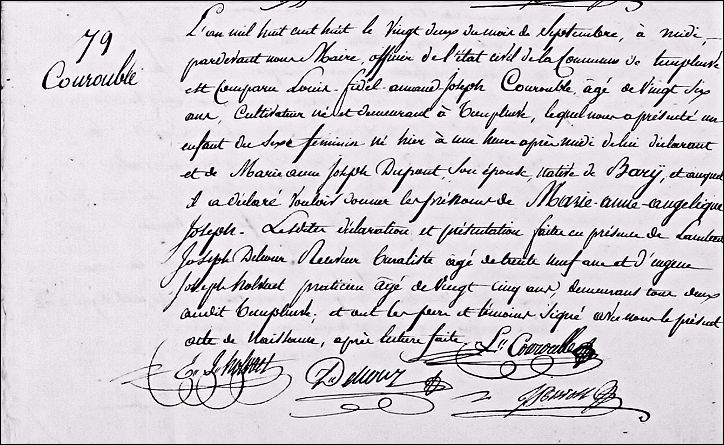 79
Courouble
L'an mil huit cent huit le vingt deux du mois de Septembre, à midi,
pardevant nous Maire, officier de l'état civil de la Commune de templeuve
est comparu Louis fidel amand Joseph Courouble, âgé de vingt six
ans, Cultivateur né et demeurant à Templeuve, lequel nous a présenté un
enfant du Sexe féminin né hier à une heure après midi de lui déclarant
et de Marie anne Joseph Dupont, Son épouse, native de Bary, et auquel
il a déclaré vouloir donner les prénoms de Marie-anne-angelique
Joseph. Lesdites déclaration et présentation faites en présence de
Joseph Delcour Receveur buraliste agé de trente neuf ans et d'eugene
Joseph praticien âgé de vingt cinq ans, demeurans tous deux
audit Templeuve; et ont les pere et témoins signé avec nous le présent
acte de Naissance, après lecture faite.
Ls Courouble
Delcour